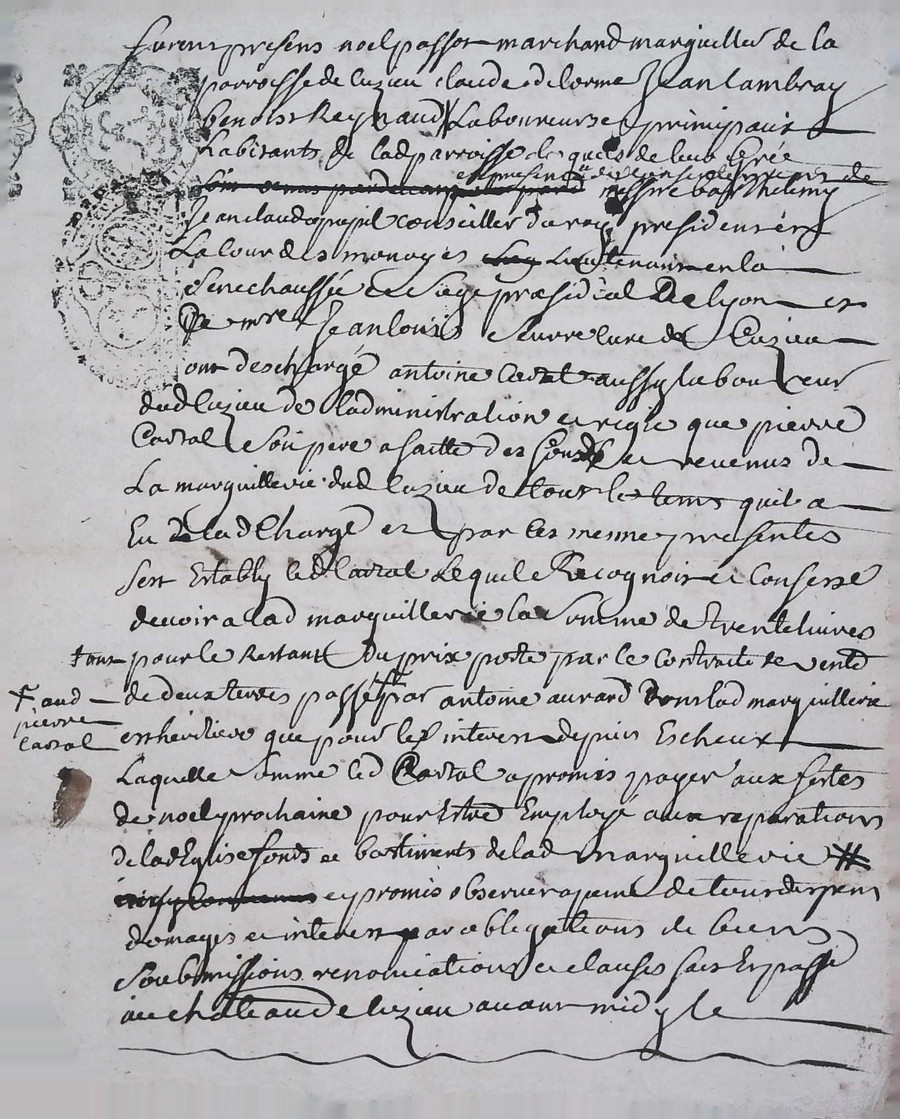 furent presens noel passot marchand marguiller de la
parroisse de luzieu claude delorme Jean lambray
benoist Reynaud Laboureurs et principaux
habitants de lad parroisse lesquels de leur Gré
en presence et du consentement de
messire barthelemy
Jean claude pupil conseiller du roy president en
La Cour des monoyes Lieutenant en la
Senechaussée et Siege præsidial De lyon et
De mre Jean louis curre de Luzieu
ont deschargé antoine Castal aussy laboureur
dud luzieu de ladministration et regie que pierre
Castal Son pere a faitte des fonds et revenus de
La marguillerie dud luzieu de tout le tems quil a
Eu de lad Charge et par ces mesme presentes
sest Estably led Castal Lequel Recognoit et Confesse
devoir a lad marguillerie la Somme de trente livres
tant pour le Restant du prix porté par le Contract de vente
de deux terres passé par antoine aurard Dont lad marguillerie
✝ aud
pierre
Castal
est heritiere que pour les interest depuis Escheux
Laquelle Somme led Castal a promis payer aux festes
de noel prochaine pour Estre Employé aux reparations
de lad Eglise fonds et bastiments de lad marguillerie #
et promis observer a peine de tous despens
domages et interest par obligations de biens
Soubmissions renonciations et clauses fait Et passé
au chateau de luzieu avant midy le